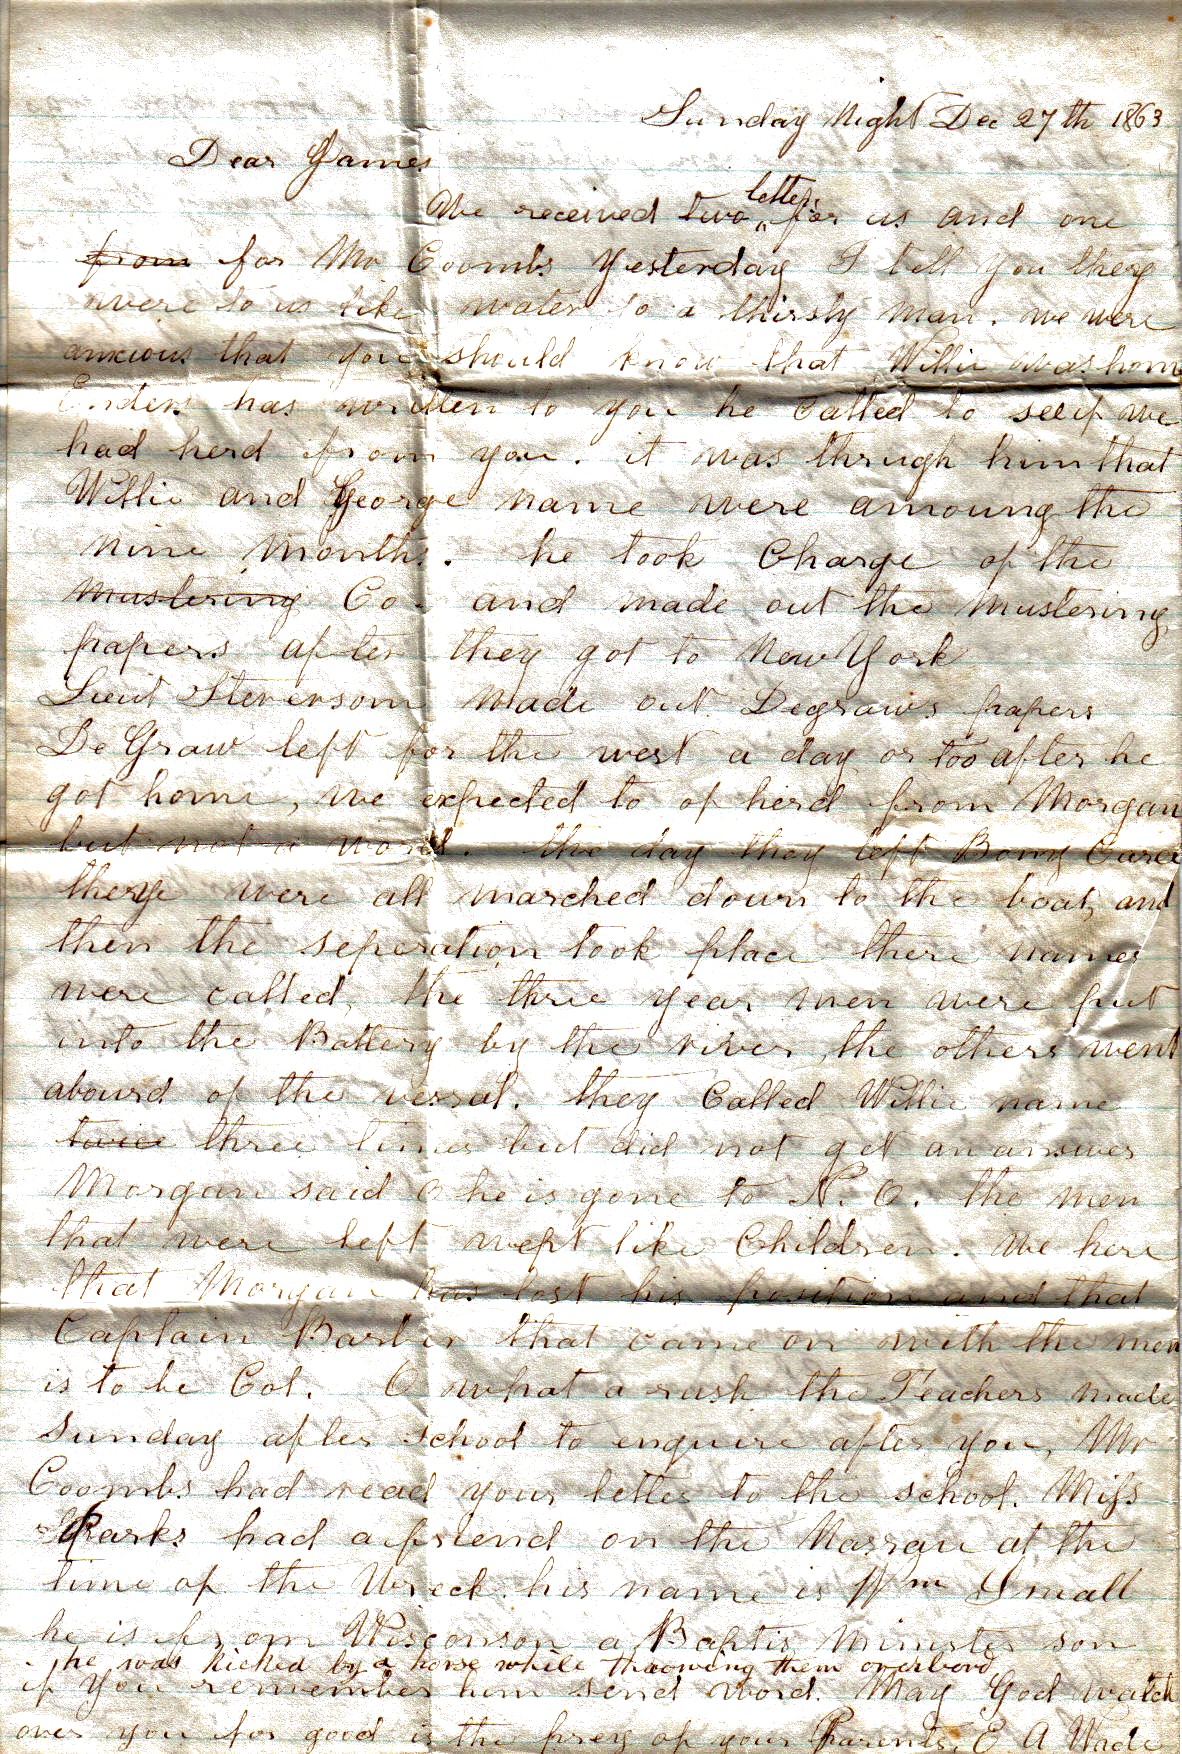 Sunday Night Dec 27th 1863
Dear James
letters
We received two for us and one
from for Mr Coombs Yesterday I tell you they
were to us like water to a thirsty man. we were
anxious that you should know that Willie was home
Enders has written to you he called to see if we
had herd from you. it was thrugh him that
Willie and George name were amoung the
nine months. he took Charge of the
Mustering Co. and made out the Mustering
papers after they got to New York
Lieut Stevenson made out Degraws papers
De Graw left for the west a day or too after he
got home, we expected to of herd from Morgan
but not a word. the day they left Bony Caree
they were all marched down to the boat, and
then the seperation took place there names
were called, the three year men were put
into the Battery by the river, the others went
abourd of the vessal. they Called Willie name
twice three times but did not get an answer
Morgan said O he is gone to N. O. the men
that were left wept like Children. We here
that Morgan has lost his position and that
Captain Barber that came on with the men
is to be Col. O what a rush the Teachers made
Sunday after School to enquire after you, Mr
Coombs had read your letter to the school. Miss
Sparks had a friend on the Nassau at the
time of the Wreck. his name is Wm Small
he is from Wisconson a Baptis Minister son
he was kicked by a horse while throwing them overbord
if you remember him send word. May God watch
over you for good is the prey of your Parents. E A Wade